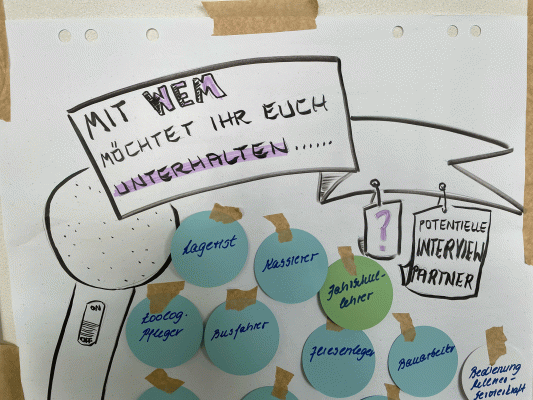 MIT WEM
MÖCHTET IHR EUCH
UNTERHALTEN ......
?
POTENTIELLE
INTERVIEW
PARTNER
Lagerist
Kassierer
Fahrschul-
lehrer
Zoolog.
Pfleger
Busfahrer
Fliesenleger
Bauarbeiter
Bedienung
Kellner-
ON
OFF